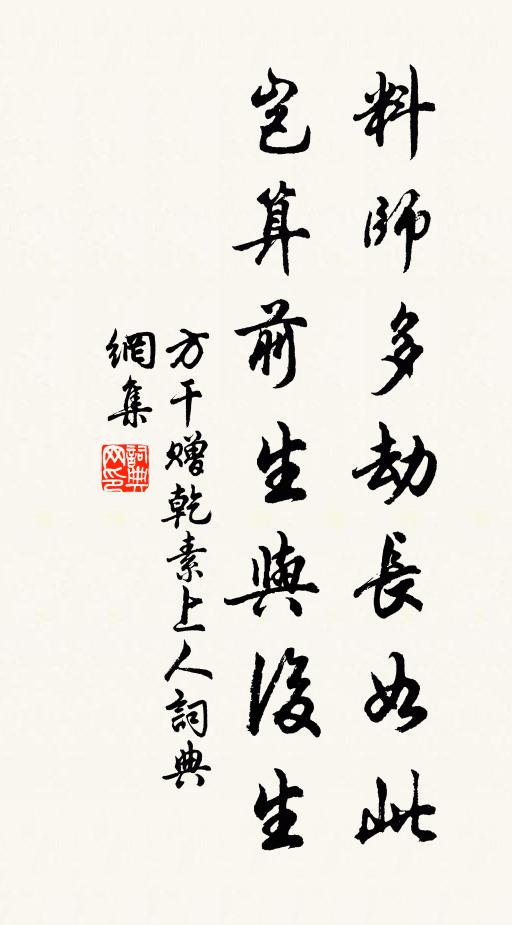 料師多劫長如此
豈算前生與後生
方干贈乾素上人詞典
網集
詞典
网印